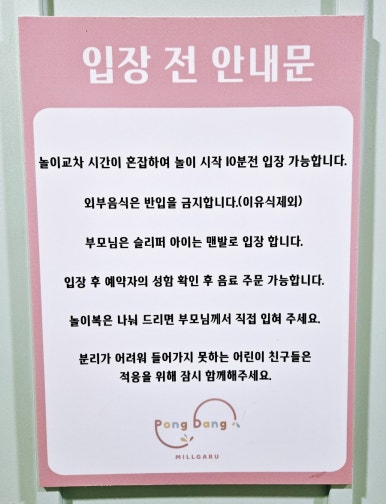 입장 전 안내문
놀이교차 시간이 혼잡하여 놀이 시작 10분전 입장 가능합니다.
외부음식은 반입을 금지합니다.(이유식제외)
부모님은 슬리퍼 아이는 맨발로 입장 합니다.
입장 후 예약자의 성함 확인 후 음료 주문 가능합니다.
놀이복은 나눠 드리면 부모님께서 직접 입혀 주세요.
분리가 어려워 들어가지 못하는 어린이 친구들은
적응을 위해 잠시 함께해주세요.
Pong Dang
MILLGARU